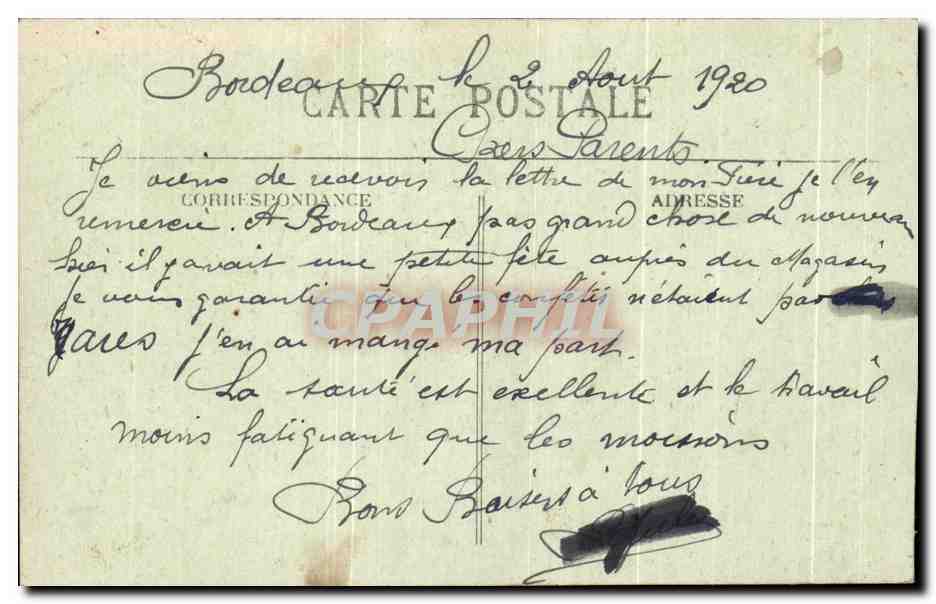 Bordeaux le 2 Aout 1920
CARTE POSTALE
Chers Parents
Je viens de recevoir la lettre de mon Père je l'en
CORRESPONDANCE ADRESSE
remercie. A Bordeaux pas grand chose de nouveau
hier il y avait une petite fête auprès du Magasin
Je vous garantie que les confetis n'étaient pas
rares j'en ai mangé ma part.
CPAPHIL
La santé est exellente et le travail
moins fatiguant que les moissons
Bons Baisers à tous